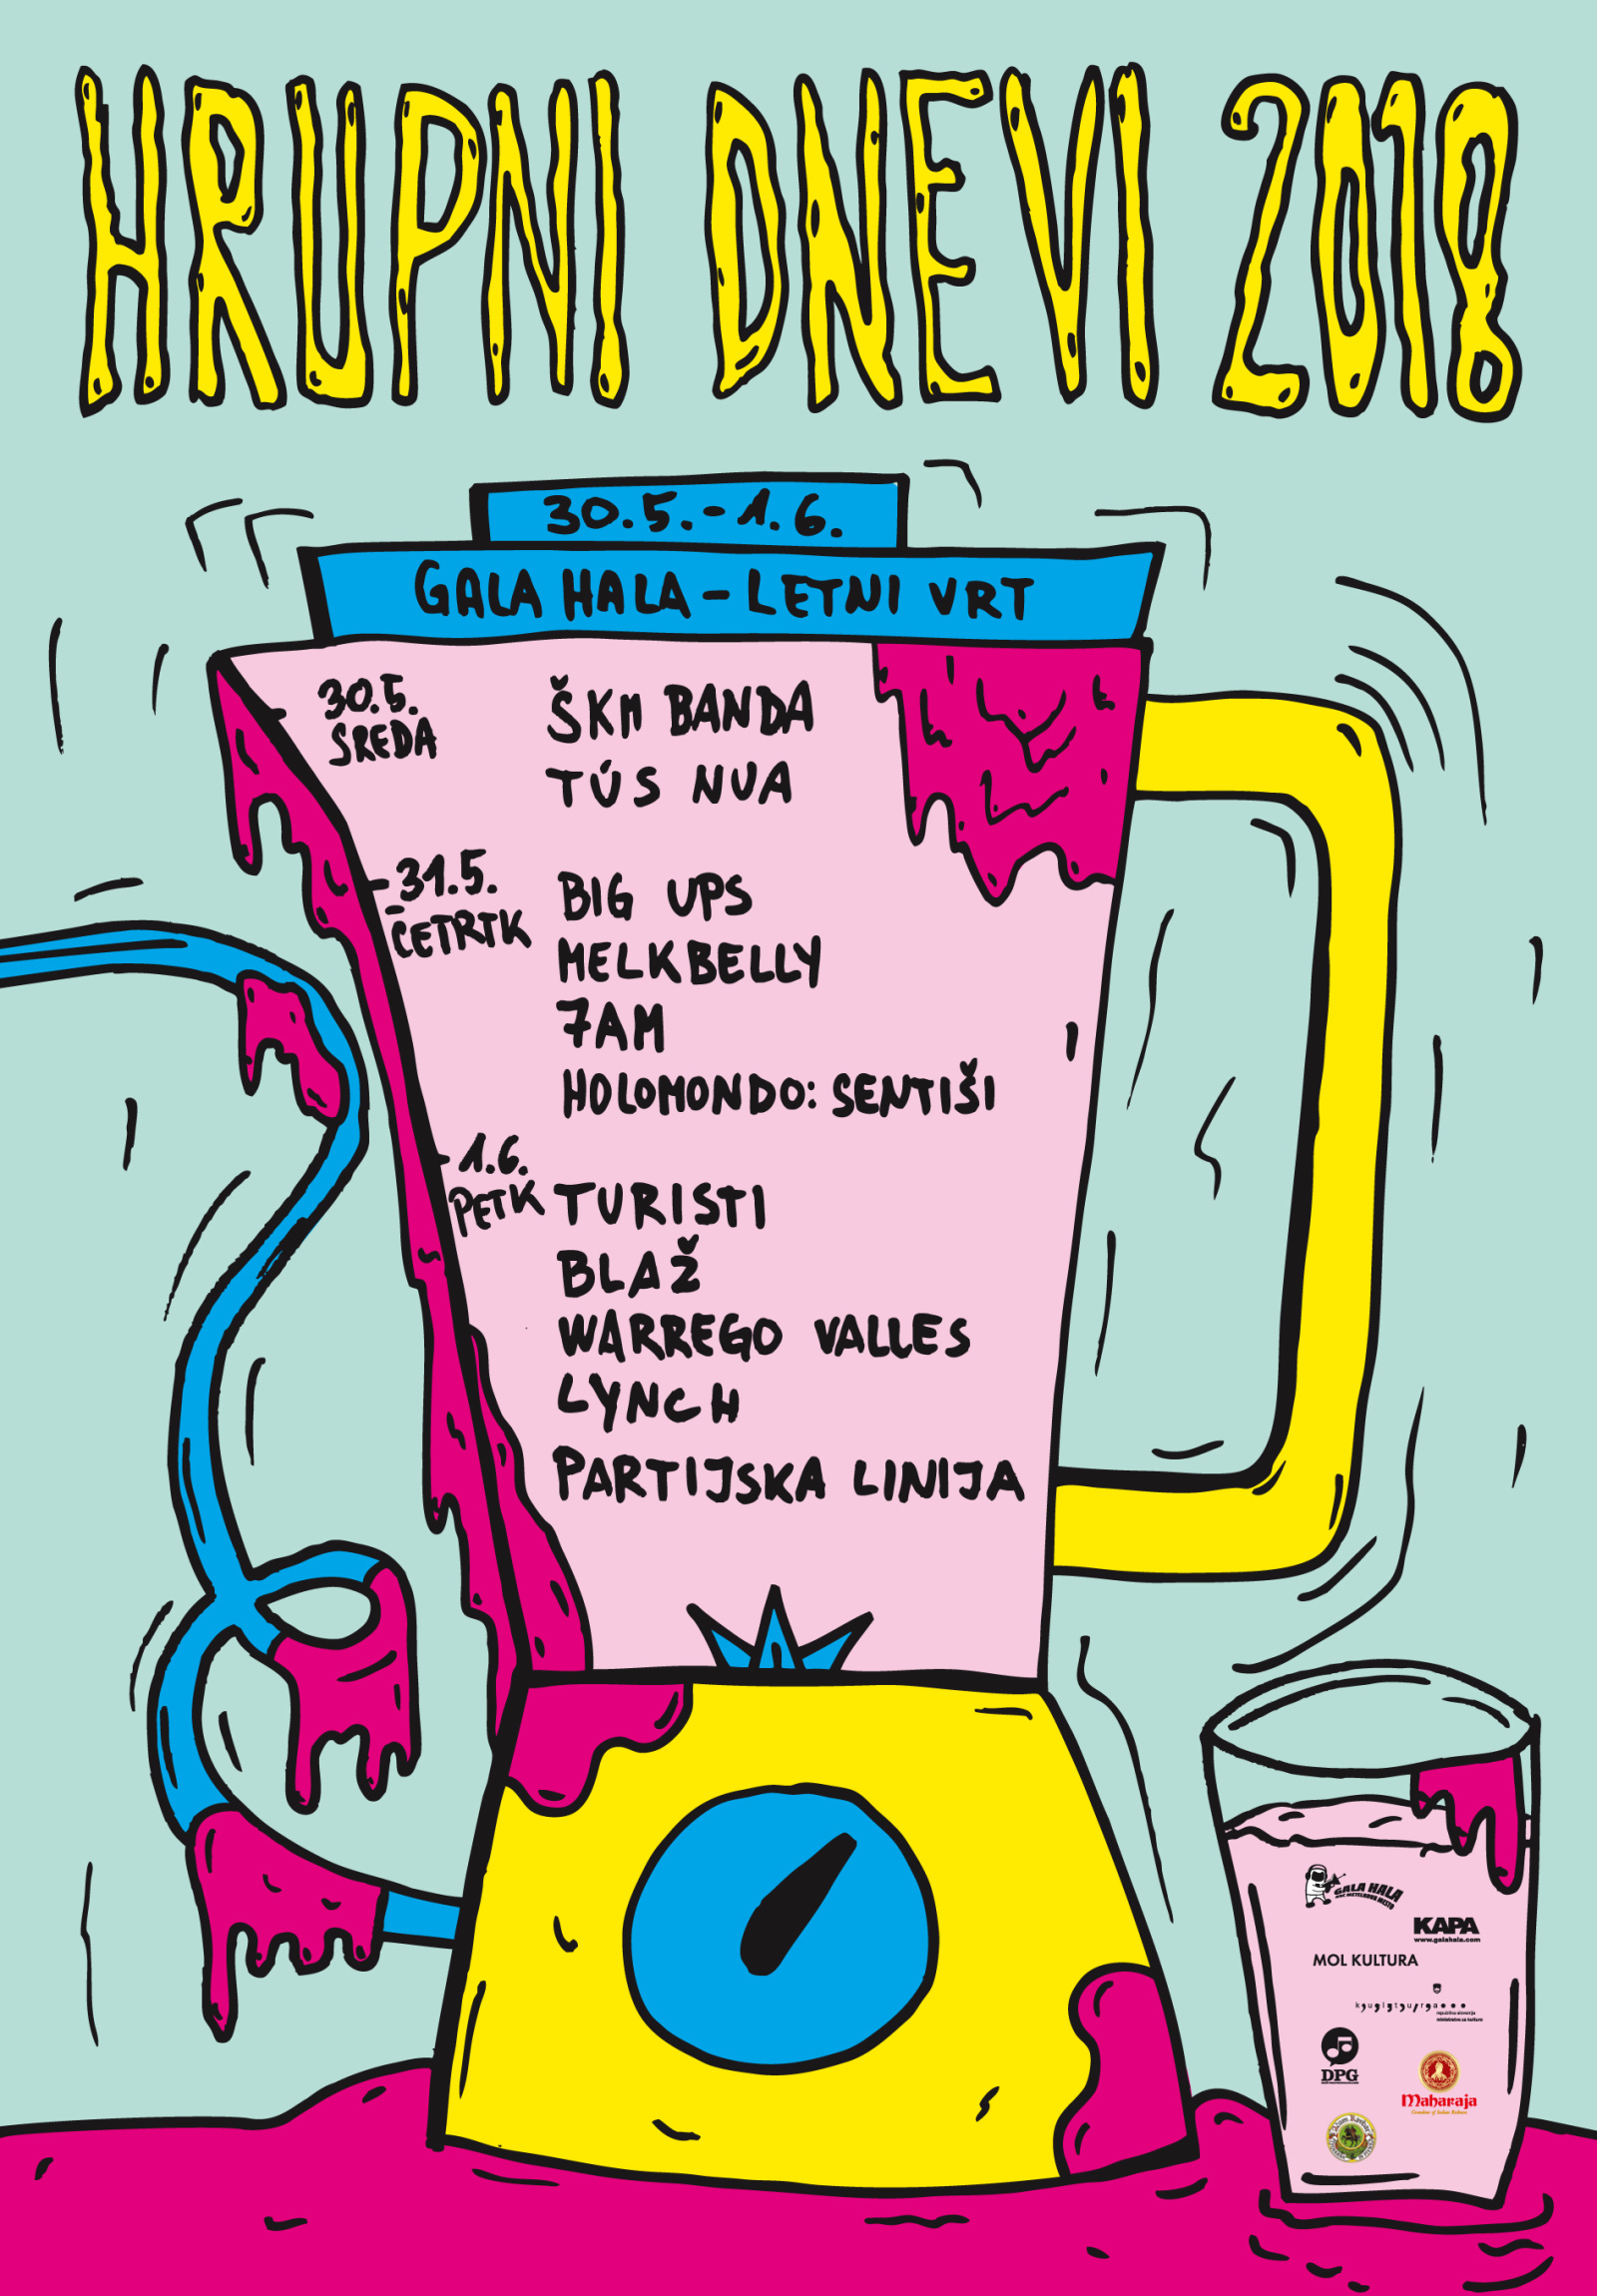 HRUPNI DNEVI 2018
30.5.-1.6.
GALA HALA-LETNI VRT
30.5.
SREDA
ŠKM BANDA
TÚS NUA
31.5.
ČETRTK
BIG UPS
MELKBELLY
7AM
HOLOMONDO: SENTIŠI
1.6.
PETK
TURISTI
BLAŽ
WARREGO VALLES
LYNCH
PARTIJSKA LINIJA
GALA HALA
AKC METELKOVA MESTO
KAPA
www.galahala.com
MOL KULTURA
republika slovenija
ministrstvo za kulturo
DPG
Maharaja